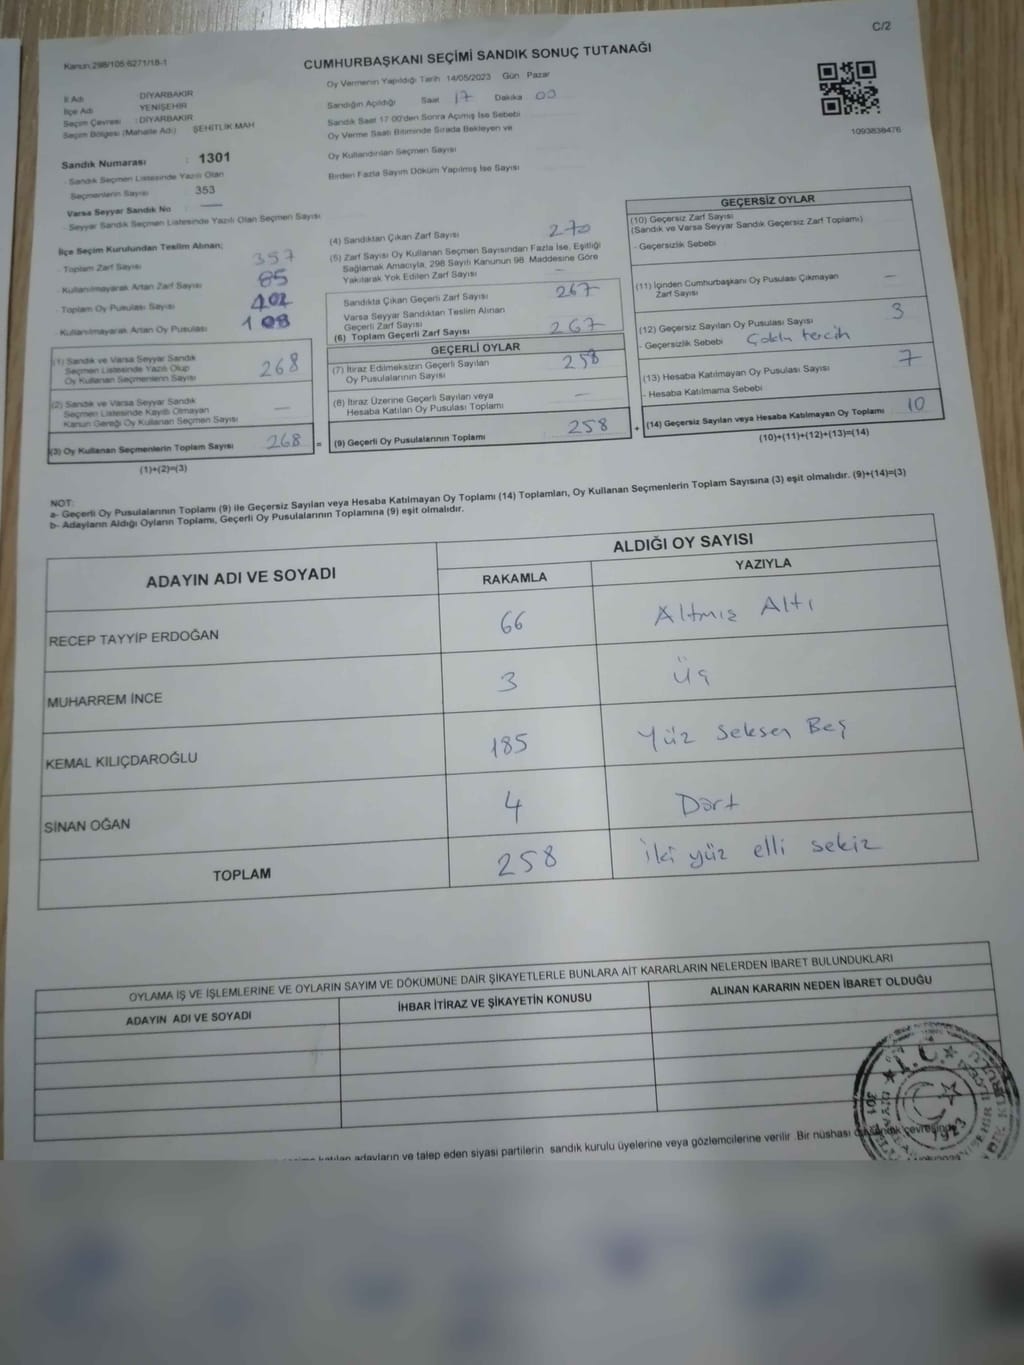 C/2
Kanun:298/105;6271/18-1
CUMHURBAŞKANI SEÇİMİ SANDIK SONUÇ TUTANAĞI
İl Adı DİYARBAKIR
İlçe Adı YENİŞEHİR
Seçim Çevresi : DİYARBAKIR
Seçim Bölgesi (Mahalle Adı) ŞEHİTLİK MAH
Sandık Numarası : 1301
- Sandık Seçmen Listesinde Yazılı Olan
Seçmenlerin Sayısı 353
Varsa Seyyar Sandık No : —
- Seyyar Sandık Seçmen Listesinde Yazılı Olan Seçmen Sayısı
Oy Vermenin Yapıldığı Tarih 14/05/2023 Gün Pazar
Sandığın Açıldığı Saat 17 Dakika 00
Sandık Saat 17:00'den Sonra Açmış İse Sebebi
Oy Verme Saati Bitiminde Sırada Bekleyen ve
Oy Kullandırılan Seçmen Sayısı
Birden Fazla Sayım Döküm Yapılmış İse Sayısı
1093838476
İlçe Seçim Kurulundan Teslim Alınan;
- Toplam Zarf Sayısı 357
- Kullanılmayarak Artan Zarf Sayısı 85
- Toplam Oy Pusulası Sayısı 402
- Kullanılmayarak Artan Oy Pusulası 108
(1) Sandık ve Varsa Seyyar Sandık
Seçmen Listesinde Yazılı Olup
Oy Kullanan Seçmenlerin Sayısı 268
(2) Sandık ve Varsa Seyyar Sandık
Seçmen Listesinde Kayıtlı Olmayan
Kanun Gereği Oy Kullanan Seçmen Sayısı —
(3) Oy Kullanan Seçmenlerin Toplam Sayısı 268 =
(1)+(2)=(3)
(4) Sandıktan Çıkan Zarf Sayısı 270
(5) Zarf Sayısı Oy Kullanan Seçmen Sayısından Fazla İse, Eşitliği
Sağlamak Amacıyla, 298 Sayılı Kanunun 98. Maddesine Göre
Yakılarak Yok Edilen Zarf Sayısı —
Sandıkta Çıkan Geçerli Zarf Sayısı 267
Varsa Seyyar Sandıktan Teslim Alınan
Geçerli Zarf Sayısı
(6) Toplam Geçerli Zarf Sayısı 267
GEÇERLİ OYLAR
(7) İtiraz Edilmeksizin Geçerli Sayılan
Oy Pusulalarının Sayısı 258
(8) İtiraz Üzerine Geçerli Sayılan veya
Hesaba Katılan Oy Pusulası Toplamı —
(9) Geçerli Oy Pusulalarının Toplamı 258 +
GEÇERSİZ OYLAR
(10) Geçersiz Zarf Sayısı
(Sandık ve Varsa Seyyar Sandık Geçersiz Zarf Toplamı)
- Geçersizlik Sebebi
(11) İçinden Cumhurbaşkanı Oy Pusulası Çıkmayan
Zarf Sayısı —
(12) Geçersiz Sayılan Oy Pusulası Sayısı 3
- Geçersizlik Sebebi Çoklu tercih
(13) Hesaba Katılmayan Oy Pusulası Sayısı 7
- Hesaba Katılmama Sebebi
(14) Geçersiz Sayılan veya Hesaba Katılmayan Oy Toplamı 10
(10)+(11)+(12)+(13)=(14)
NOT:
a- Geçerli Oy Pusulalarının Toplamı (9) ile Geçersiz Sayılan veya Hesaba Katılmayan Oy Toplamı (14) Toplamları, Oy Kullanan Seçmenlerin Toplam Sayısına (3) eşit olmalıdır. (9)+(14)=(3)
b- Adayların Aldığı Oyların Toplamı, Geçerli Oy Pusulalarının Toplamına (9) eşit olmalıdır.
ADAYIN ADI VE SOYADI ALDIĞI OY SAYISI
RAKAMLA YAZIYLA
RECEP TAYYİP ERDOĞAN 66 Altmış Altı
MUHARREM İNCE 3 Üç
KEMAL KILIÇDAROĞLU 185 Yüz Seksen Beş
SİNAN OĞAN 4 Dört
TOPLAM 258 İki yüz elli sekiz
OYLAMA İŞ VE İŞLEMLERİNE VE OYLARIN SAYIM VE DÖKÜMÜNE DAİR ŞİKAYETLERLE BUNLARA AİT KARARLARIN NELERDEN İBARET BULUNDUKLARI
ADAYIN ADI VE SOYADI İHBAR İTİRAZ VE ŞİKAYETİN KONUSU ALINAN KARARIN NEDEN İBARET OLDUĞU
katılan adayların ve talep eden siyasi partilerin sandık kurulu üyelerine veya gözlemcilerine verilir. Bir nüshası da sandık çevresinde
T.C.
1923